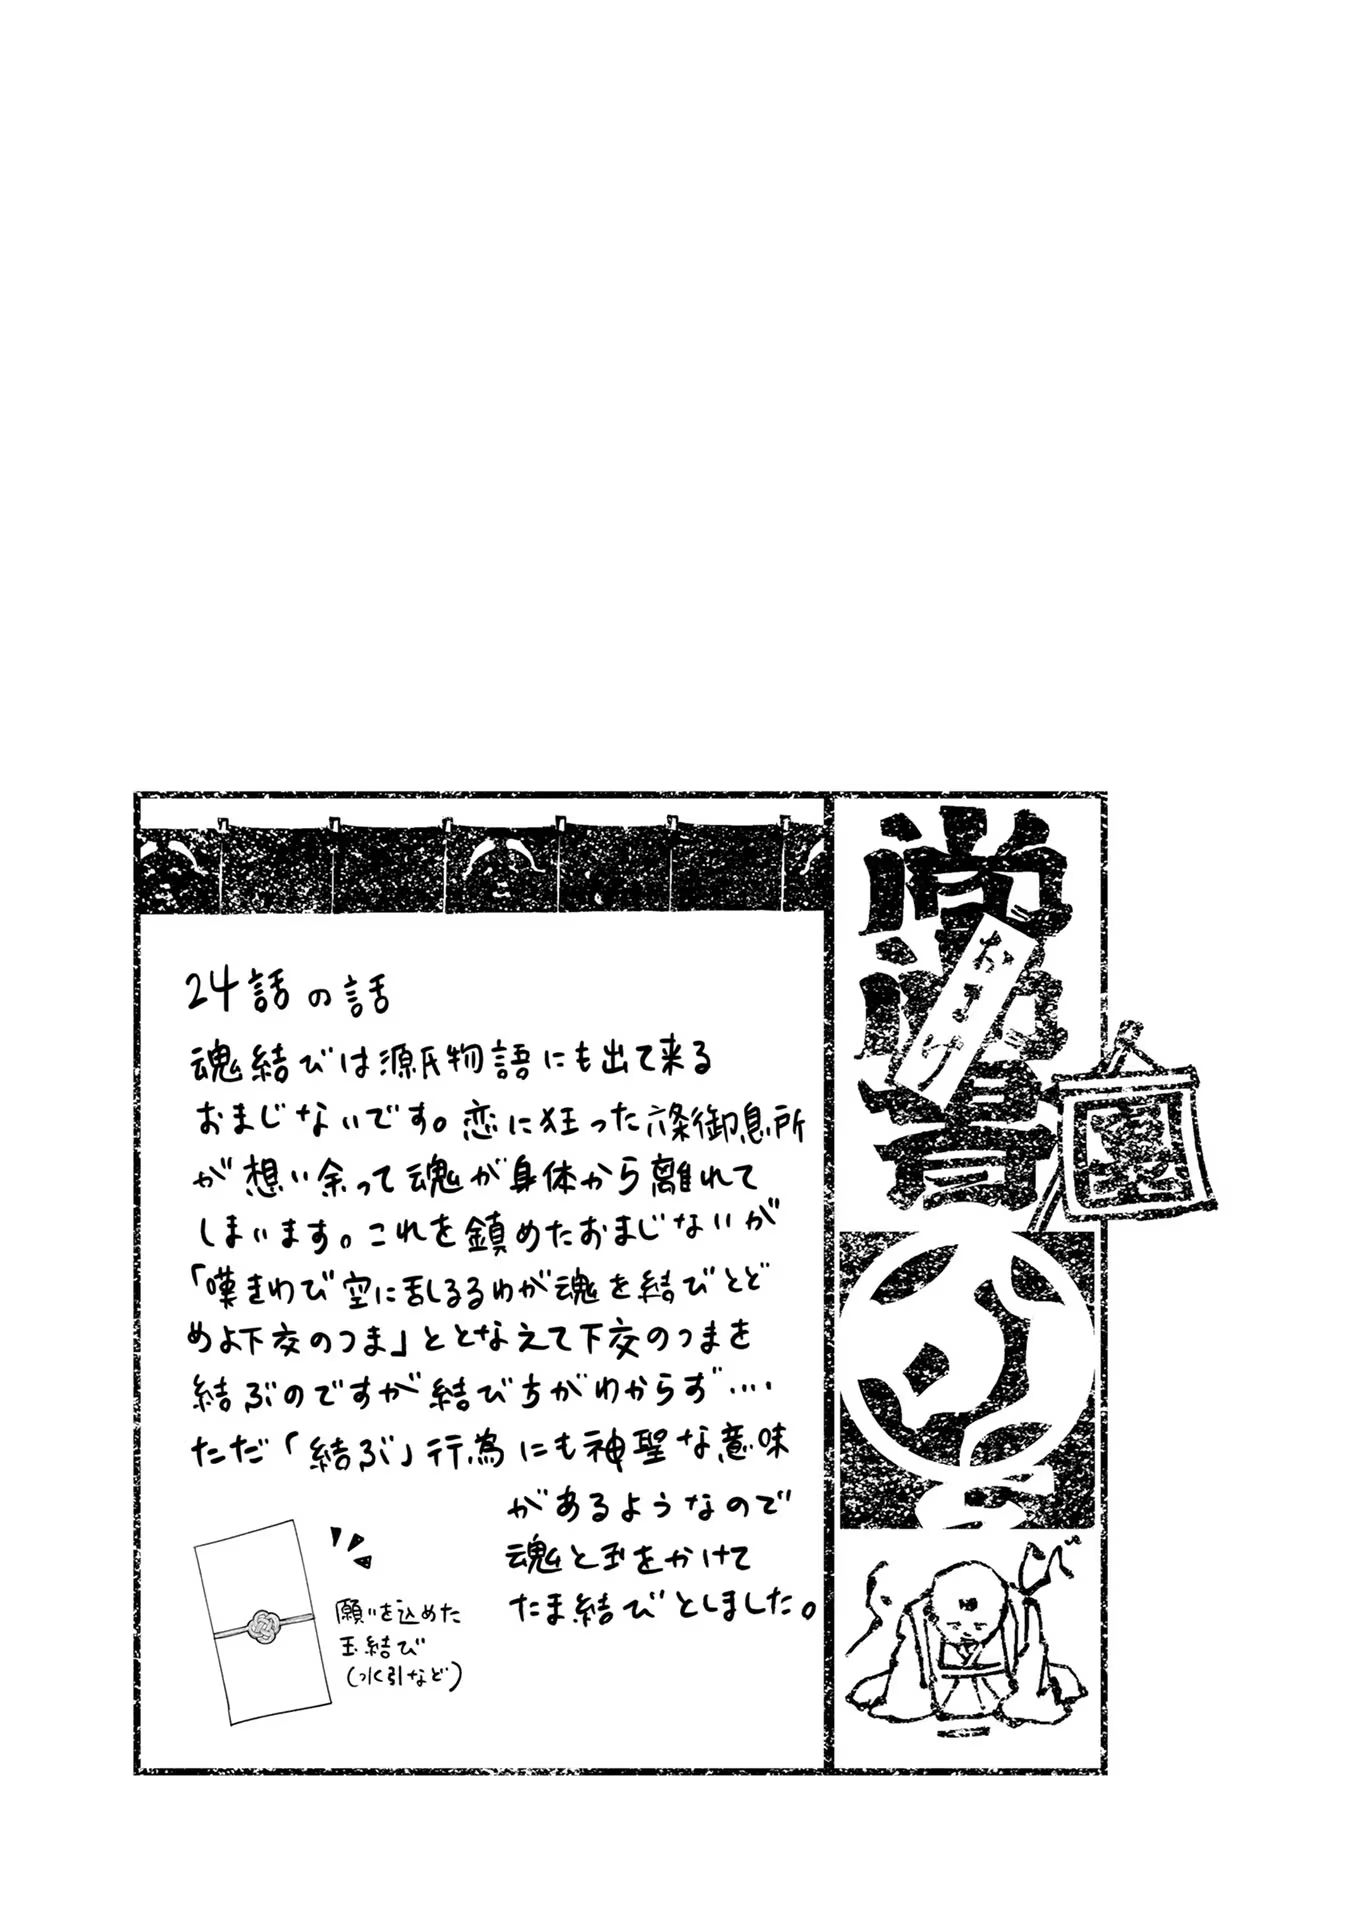 おまけ
24話の話
魂結びは源氏物語にも出て来る
おまじないです。恋に狂った六条御息所
が想い余って魂が身体から離れて
しまいます。これを鎮めたおまじないが
「嘆きわび空に乱るるわが魂を結びとど
めよ下交のつま」ととなえて下交のつまを
結ぶのですが結び方がわからず‥‥
ただ「結ぶ」行為にも神聖な意味
があるようなので
魂と玉をかけて
たま結びとしました。
願いを込めた
玉結び
(水引など)